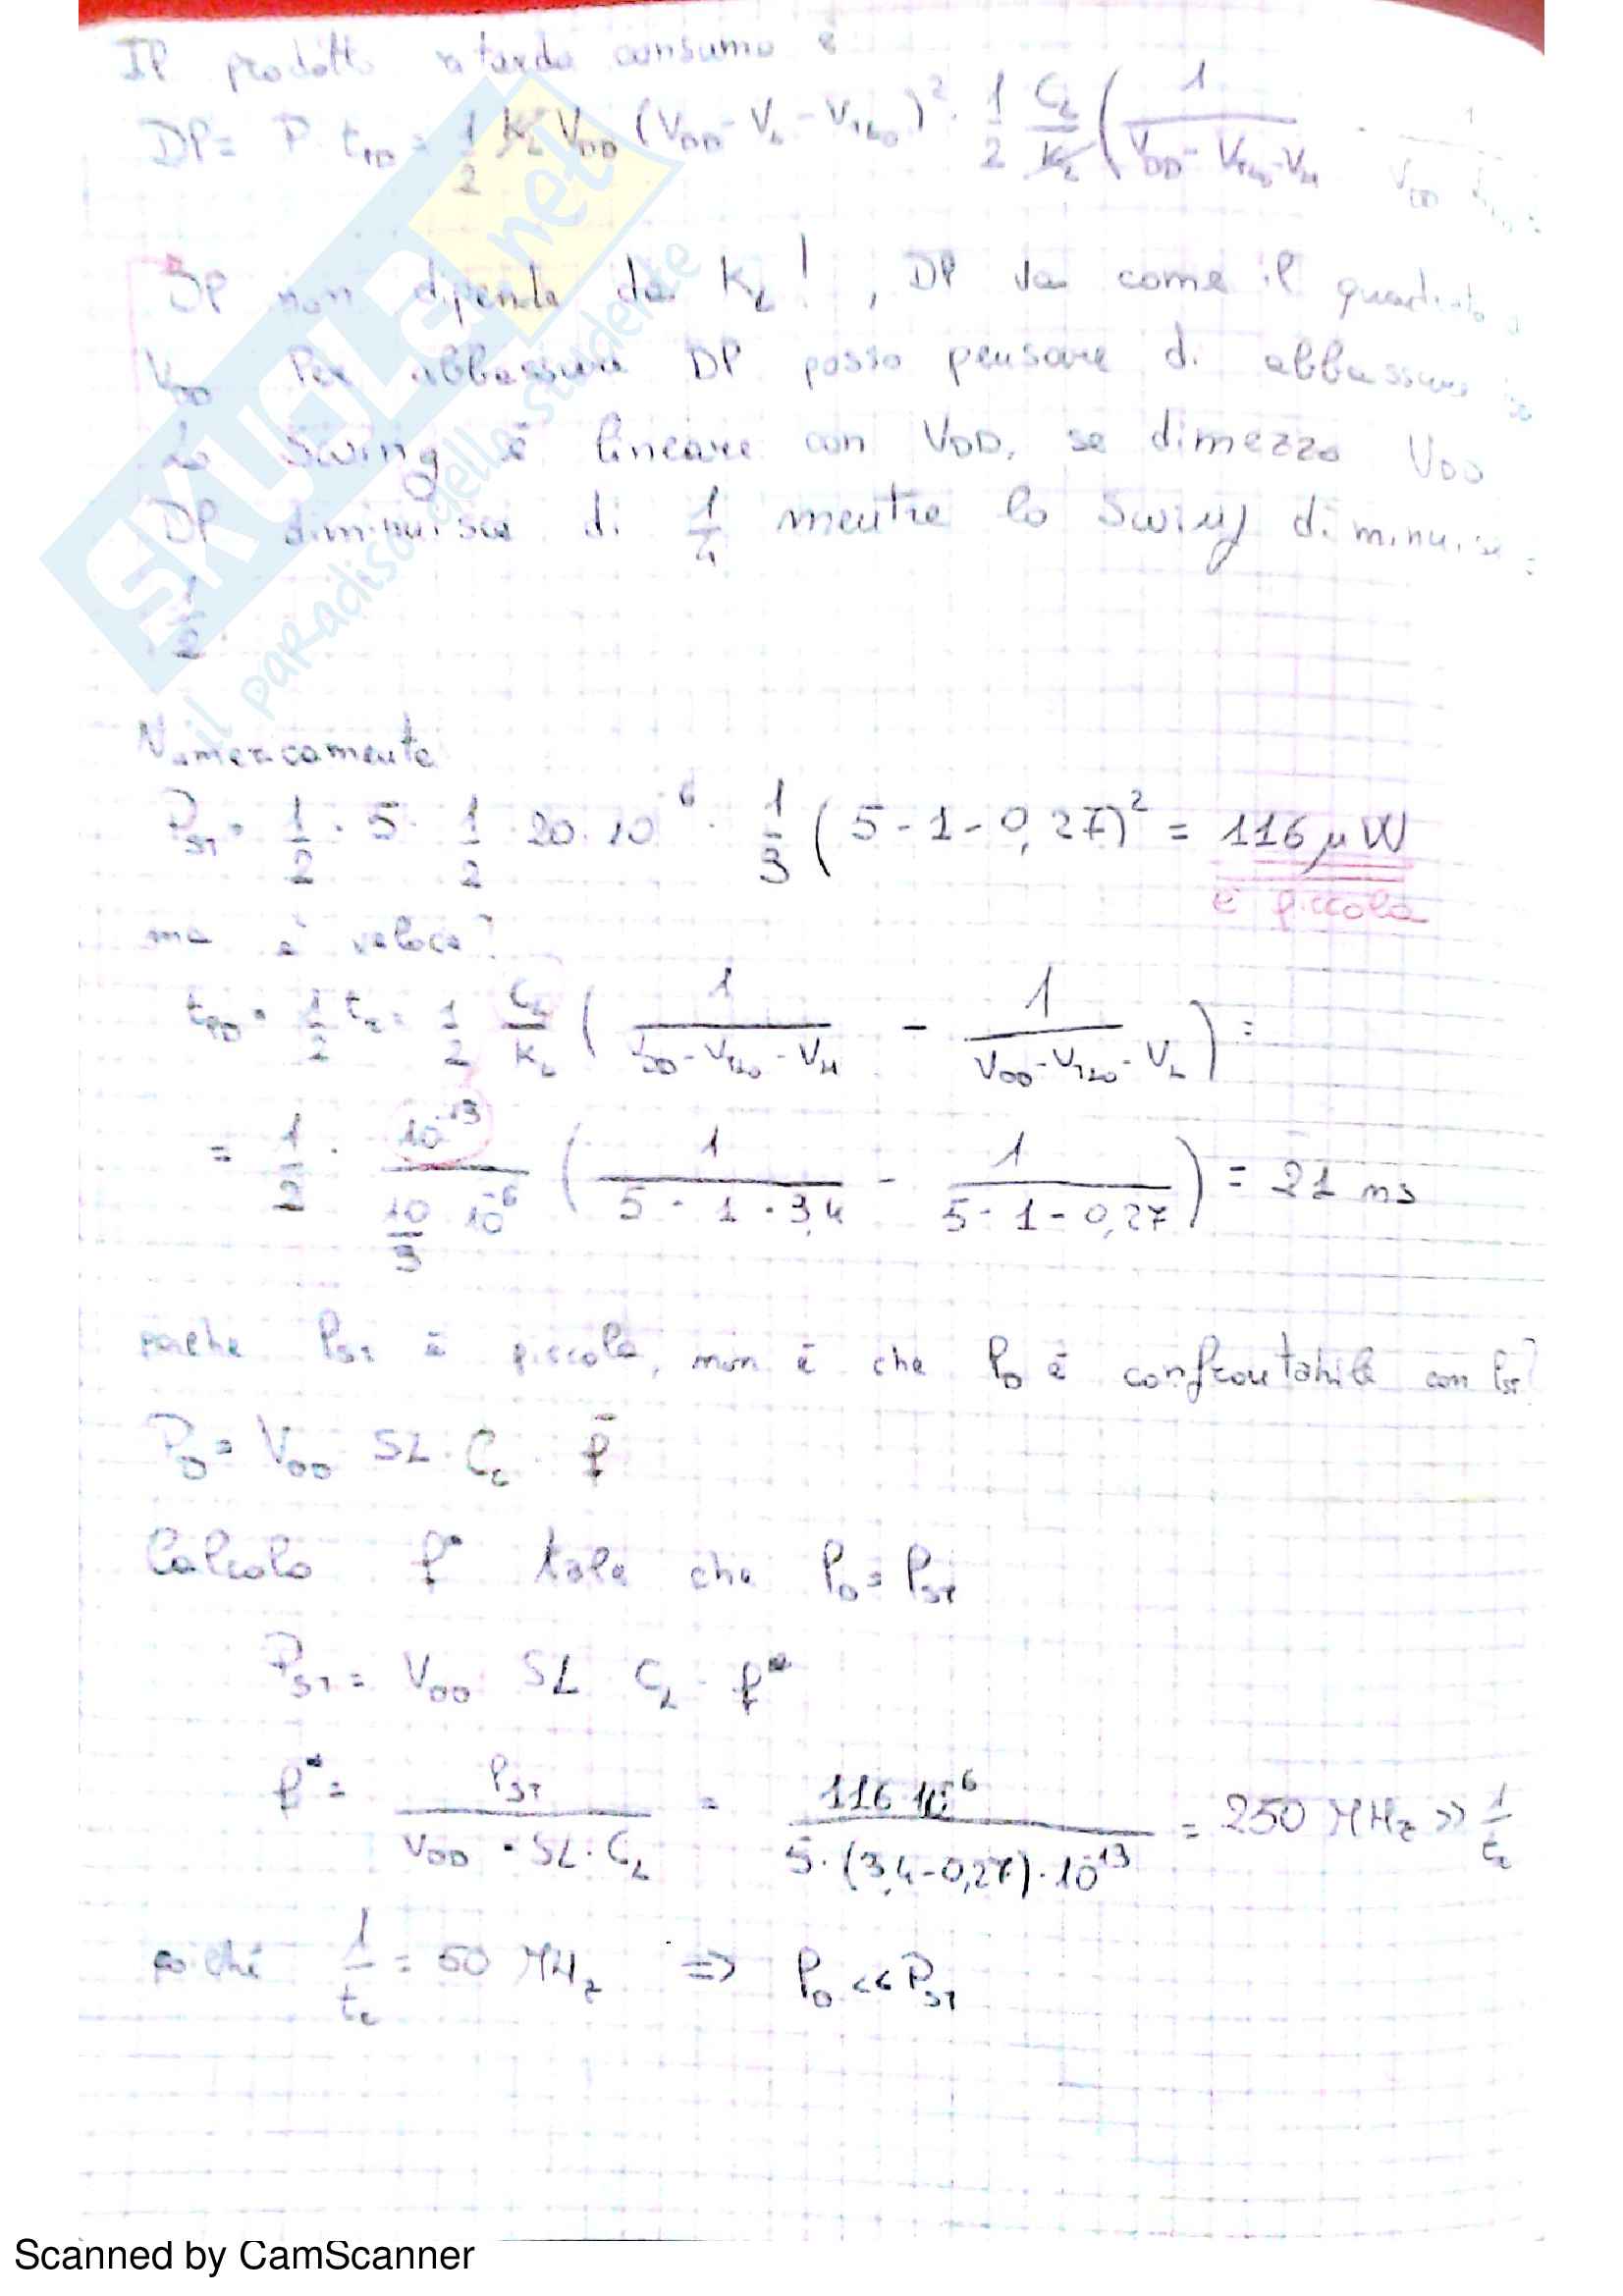 Il prodotto ritardo consumo è
DP = P · t_PD = 1/2 K_L V_DD (V_DD - V_L - V_TL0)² · 1/2 C_L/K_L (1/(V_DD - V_TL0 - V_H) - 1/(V_DD
DP non dipende da K_L!, DP va come il quadrato
V_DD Per abbassare DP posso pensare di abbassare
Lo Swing è lineare con V_DD, se dimezzo V_DD
DP diminuisce di 1/4 mentre lo Swing diminuisce
1/2.
Numericamente
P_ST = 1/2 · 5 · 1/2 · 20 · 10^-6 · 1/3 (5 - 1 - 0,27)² = 116 μW
è piccola
ma è veloce?
t_PD = 1/2 t_r = 1/2 C_L/K_L (1/(V_DD - V_TL0 - V_H) - 1/(V_DD - V_TL0 - V_L)) =
= 1/2 · 10^-13/(10/3 10^-6) (1/(5 - 1 - 3,4) - 1/(5 - 1 - 0,27)) = 21 ns
P_ST è piccola, non è che P_D è confrontabile con P_ST?
P_D = V_DD SL · C_L · f
Calcolo f* tale che P_D = P_ST
P_ST = V_DD SL C_L · f*
f* = P_ST/(V_DD · SL · C_L) = 116·10^-6/(5·(3,4-0,27)·10^-13) = 250 MHz >> 1/t_r
poiché 1/t_r = 50 MHz => P_D << P_ST
SKUOLA.net
il paradiso dello studente
Scanned by CamScanner